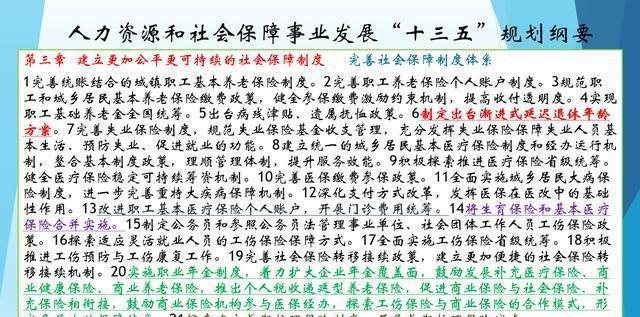 人力资源和社会保障事业发展“十三五”规划纲要
第三章 建立更加公平更可持续的社会保障制度 完善社会保障制度体系
1完善统账结合的城镇职工基本养老保险制度。2完善职工养老保险个人账户制度。3规范职
工和城乡居民基本养老保险缴费政策，健全参保缴费激励约束机制，提高收付透明度。4实现
职工基础养老金全国统筹。5出台病残津贴、遗属抚恤政策。6制定出台渐进式延迟退休年龄
方案。7完善失业保险制度，规范失业保险基金收支管理，充分发挥失业保险保障失业人员基
本生活、预防失业、促进就业的功能。8建立统一的城乡居民基本医疗保险制度和经办运行机
制，整合基本制度政策，理顺管理体制，提升服务效能。9积极探索推进医疗保险省级统筹。
健全医疗保险稳定可持续筹资机制。10完善医保缴费参保政策。11全面实施城乡居民大病保
险制度，进一步完善重特大疾病保障机制。12深化支付方式改革，发挥医保在医改中的基础
性作用。13改进职工基本医疗保险个人账户，开展门诊费用统筹。14将生育保险和基本医疗
保险合并实施。15制定公务员和参照公务员法管理事业单位、社会团体工作人员工伤保险政
策。16探索适应灵活就业人员的工伤保险保障方式。17全面实施工伤保险省级统筹。18积极
推进工伤预防与工伤康复工作。19完善社会保险转移接续政策，建立更加便捷的社会保险转
移接续机制。20实施职业年金制度，着力扩大企业年金覆盖面，鼓励发展补充医疗保险、商
业健康保险、商业养老保险，推出个人税收递延型养老保险，促进商业保险与社会保险、补
充保险相衔接，鼓励商业保险机构参与医保经办，探索工伤保险与商业保险的合作模式，形